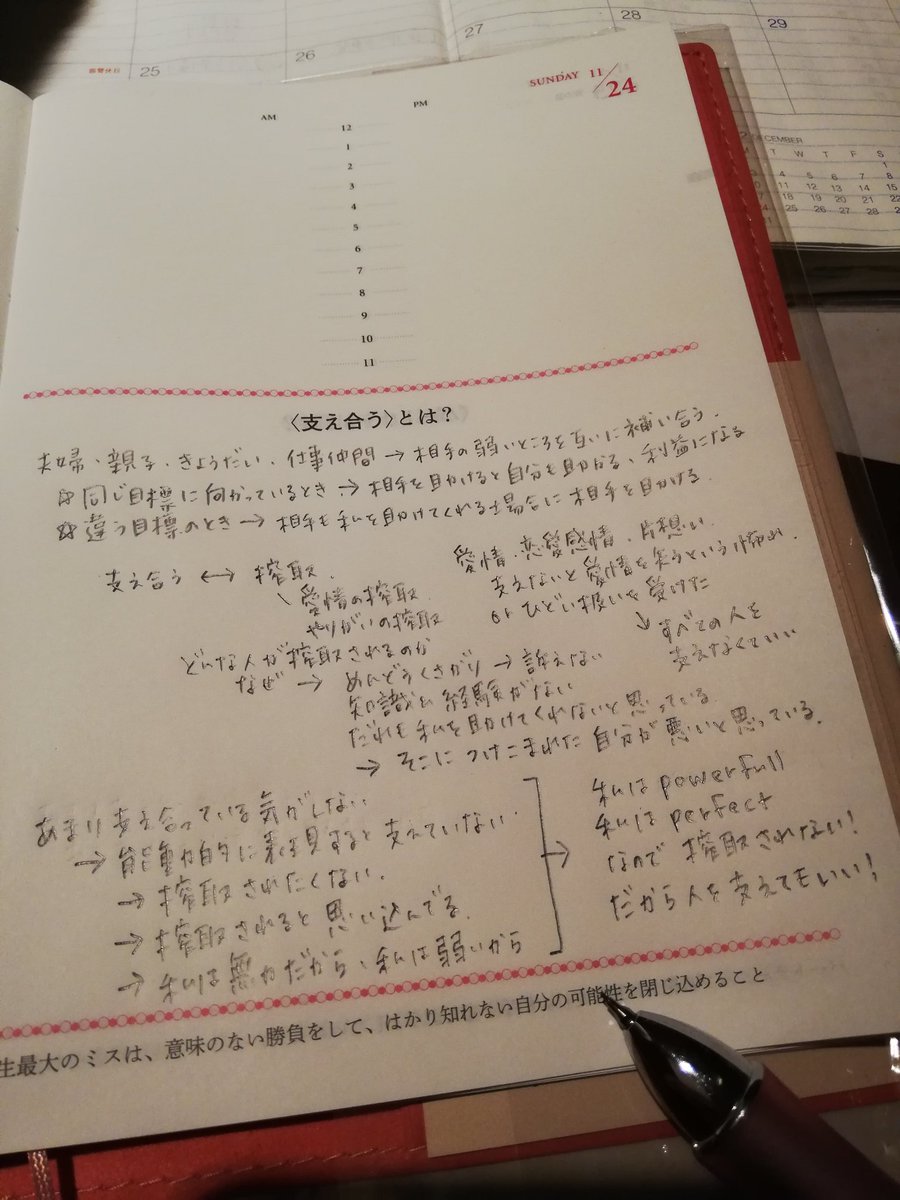 振替休日 25
26
27
28
29
SUNDAY 11/24
AM
PM
12
1
2
3
4
5
6
7
8
9
10
11
ECEMBER
T W T F S
1
4 5 6 7 8
10 11 12 13 14 15
18 19 20 21 22
24 25 26 27 28
〈支え合う〉とは?
夫婦・親子・きょうだい・仕事仲間→相手の弱いところを互いに補い合う。
☆同じ目標に向かっているとき→相手を助けると自分も助かる、利益になる
☆違う目標のとき→相手も私を助けてくれる場合に相手を助ける。
支え合う ⟷ 搾取.
愛情の搾取
やりがいの搾取
愛情・恋愛感情・片想い
支えないと愛情を失うという怖れ
or ひどい扱いを受けた
↓すべての人を
支えなくていい
どんな人が搾取されるのか
なぜ → めんどうくさがり→訴えない
知識や経験がない
だれも私を助けてくれないと思っている。
→ そこにつけこまれた自分が悪いと思っている。
あまり支え合っている気がしない
→能動的に表現すると支えていない
→搾取されたくない.
→搾取されると思い込んでる.
→私は無力だから、私は弱いから
私は powerfull
私は perfect
なので搾取されない!
だから人を支えてもいい!
生最大のミスは、意味のない勝負をして、はかり知れない自分の可能性を閉じ込めること